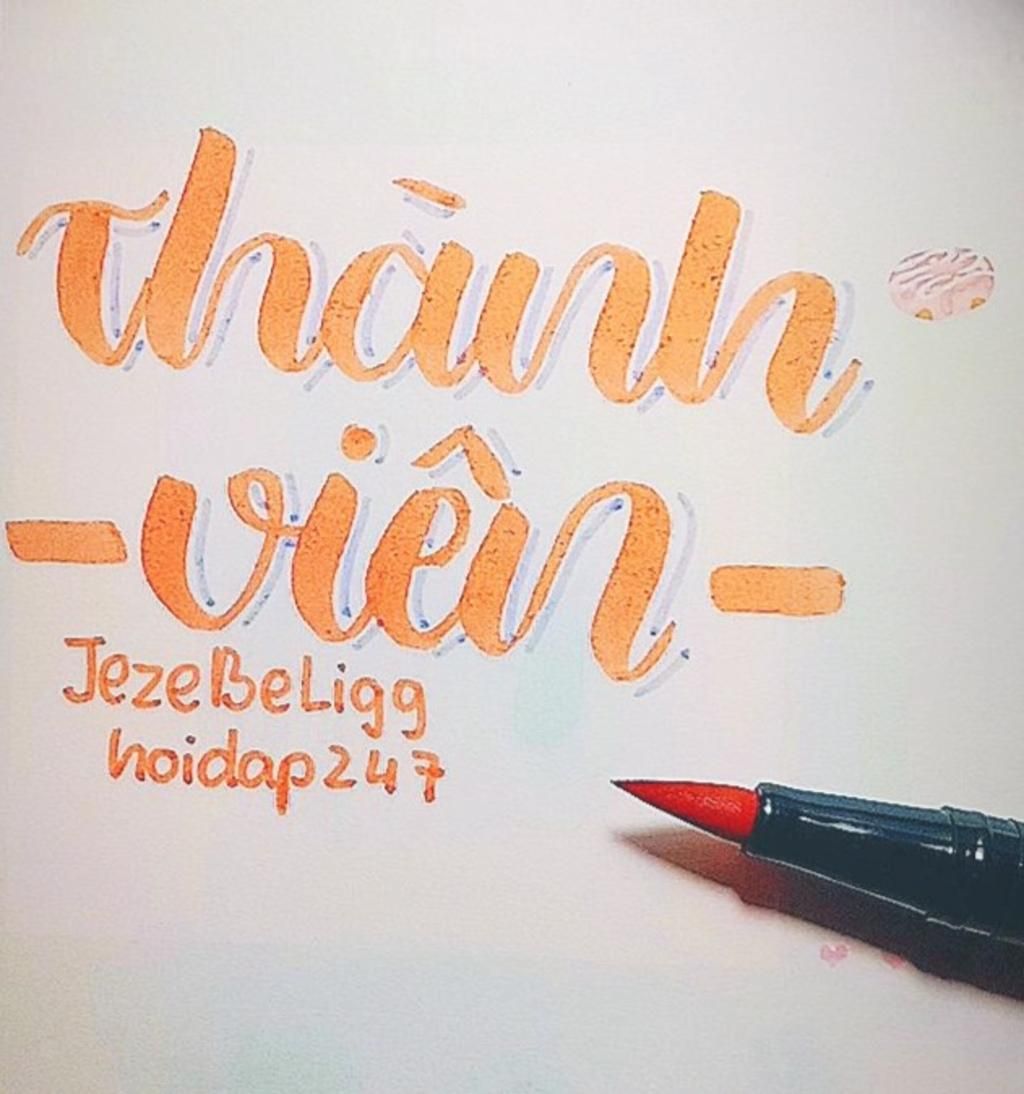 thành
-viên-
JezeBeLigg
hoidap247